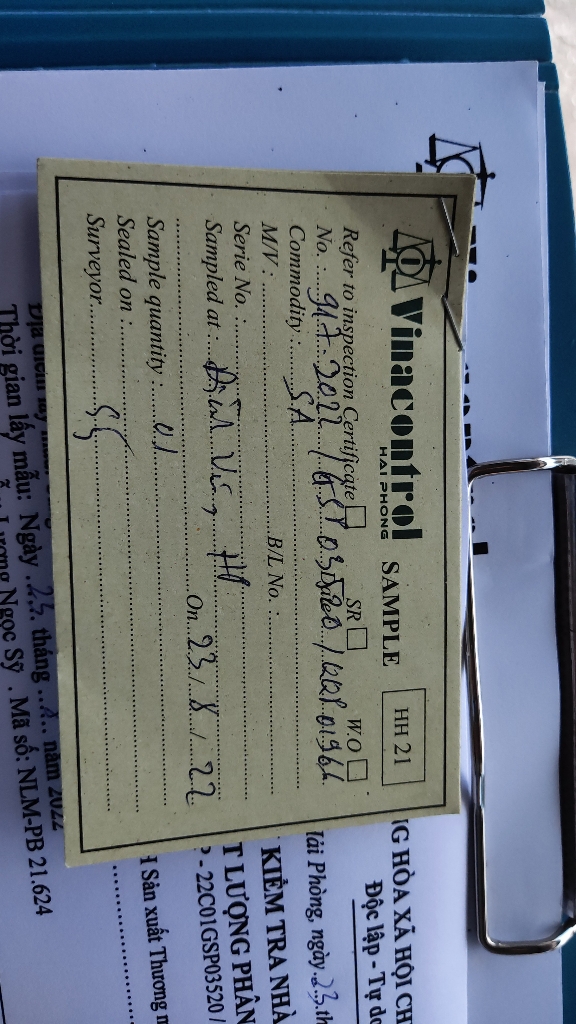 Vinacontrol
HAI PHONG
SAMPLE
HH 21
Refer to inspection Certificate SR W.O
No. : 917-2022 /
Commodity: SA
M/V : B/L No. :
Serie No. :
Sampled at : On 23 / 8 / 22
Sample quantity : 01
Sealed on :
Surveyor
NG HÒA XÃ HỘI CH
Độc lập - Tự do
Hải Phòng, ngày 23 th
KIỂM TRA NHÀ
T LƯỢNG PHÂN
P - 22C01GSP03520 /
H Sản xuất Thương m
năm 2022
Thời gian lấy mẫu: Ngày 23 tháng
Lương Ngọc Sỹ . Mã số: NLM-PB 21.624